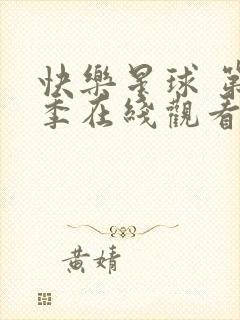 快樂星球 第
季在綫觀看
黃婧